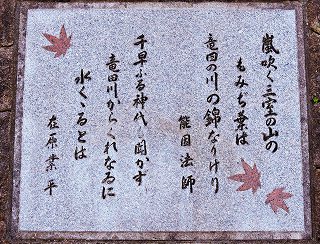 嵐吹く三室の山の
もみち葉は
竜田の川の錦なりけり
能因法師
千早ふる神代も聞かす
竜田川からくれなゐに
水くゝるとは
在原業平